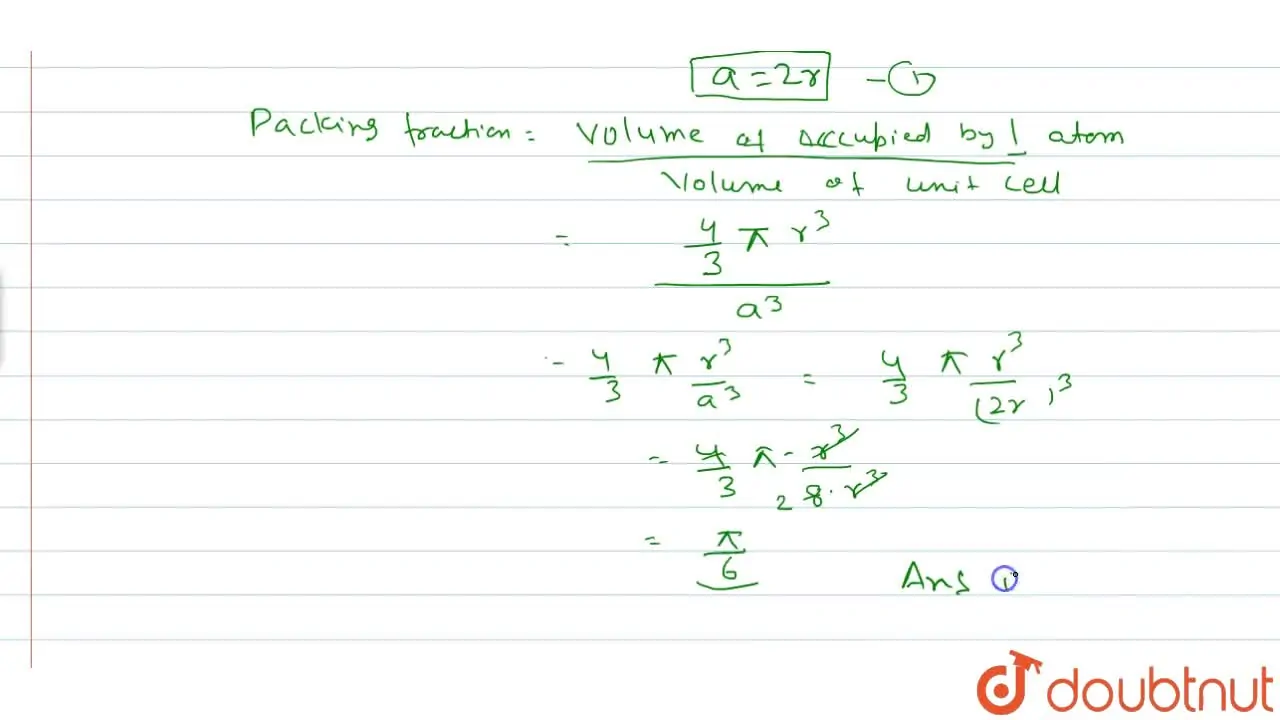 a = 2r - ①
Packing fraction = Volume of occupied by 1 atom
Volume of unit cell
= 4/3 π r³
a³
- 4/3 π r³/a³ = 4/3 π r³/(2r)³
= 4/3 π - r³/8·r³ 2
= π/6
Ans ①
doubtnut